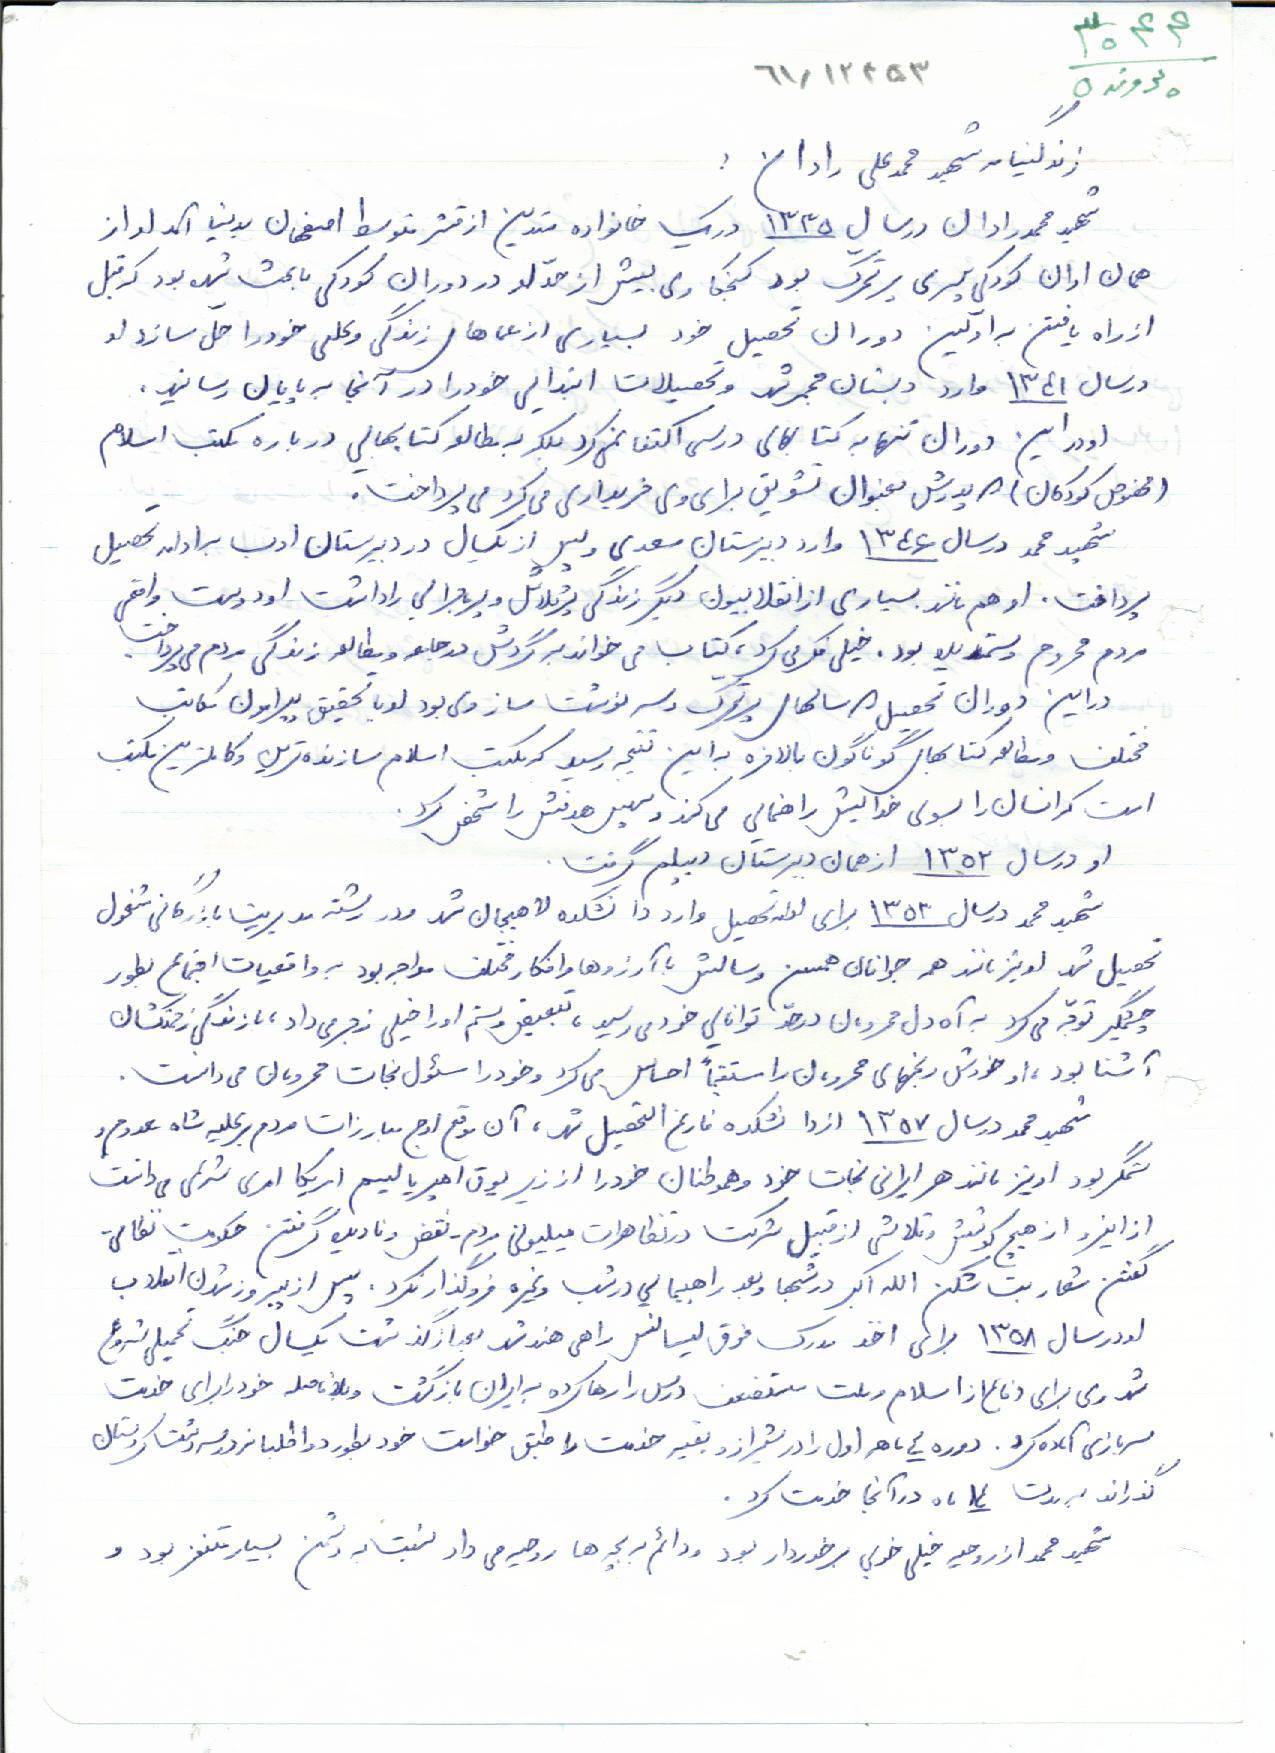 ۳۰۴۴
پرونده ۵
۶۱/۱۲۲۵۳
زندگینامه شهید محمدعلی رادان :
شهید محمد رادان در سال ۱۳۳۵ در یک خانواده متدین از قشر متوسط اصفهان بدنیا آمد او از
همان اوان کودکی پسری پر تحرک بود کنجکاوی بیش از حد او در دوران کودکی باعث شده بود که قبل
از راه یافتن به اولین دوران تحصیل خود بسیاری از معماهای زندگی و علمی خود را حل سازد او
در سال ۱۳۴۱ وارد دبستان مجمر شد و تحصیلات ابتدائی خود را در آنجا به پایان رسانید .
او در این دوران تنها به کتابهای درسی اکتفا نمی کرد بلکه به مطالعه کتابهایی درباره مکتب اسلام
(مخصوص کودکان) که پدرش بعنوان تشویق برای وی خریداری می کرد می پرداخت .
شهید محمد در سال ۱۳۴۶ وارد دبیرستان سعدی و پس از یکسال در دبیرستان ادب به ادامه تحصیل
پرداخت . او هم مانند بسیاری از انقلابیون دیگر زندگی پرتلاش و پرماجرائی را داشت او دوست واقعی
مردم محروم و ستمدیده بود . خیلی فکر می کرد ، کتاب می خواند به گردش در جامعه و مطالعه زندگی مردم می پرداخت .
در این دوران تحصیل که سالهای پرتحرک و سرنوشت ساز وی بود او با تحقیق پیرامون مکاتب
مختلف و مطالعه کتابهای گوناگون بالاخره به این نتیجه رسید که مکتب اسلام سازنده ترین و کاملترین مکتب
است که انسان را بسوی خدایش راهنمایی می کند و مسیر هدفش را مشخص کرد .
او در سال ۱۳۵۲ از همان دبیرستان دیپلم گرفت .
شهید محمد در سال ۱۳۵۳ برای ادامه تحصیل وارد دانشکده لاهیجان شد و در رشته مدیریت بازرگانی مشغول
تحصیل شد او نیز مانند همه جوانان همسن و سالش با آرزوها و افکار مختلف مواجه بود به واقعیات اجتماع بطور
چشمگیر توجه می کرد به آه دل محرومان در حد توانایی خود می رسید ، تبعیض و ستم او را خیلی زجر می داد ، با زندگی زحمتکشان
آشنا بود ، او خودش رنجهای محرومان را مستقیماً احساس می کرد و خود را مسئول نجات محرومان می دانست .
شهید محمد در سال ۱۳۵۷ از دانشکده فارغ التحصیل شد ، آن موقع اوج مبارزات مردم برعلیه شاه معدوم و
ستمگر بود او نیز مانند هر ایرانی نجات خود و هموطنان خود را از زیر یوق امپریالیسم امریکا امری شرعی می دانست
از اینرو از هیچ کوشش و تلاشی از قبیل شرکت در تظاهرات میلیونی مردم - نقض و نادیده گرفتن حکومت نظامی -
گفتن شعار بت شکن الله اکبر در شبها و بعد راهپیمایی در شب و غیره فروگذار نکرد . پس از پیروز شدن انقلاب
او در سال ۱۳۵۸ برای اخذ مدرک فوق لیسانس راهی هند شد بعد از گذشت یکسال جنگ تحمیلی شروع
شد وی برای دفاع از اسلام و ملت مستضعف درس را رها کرده به ایران بازگشت و بلافاصله خود را برای خدمت
سربازی آماده کرد . دوره ۴ ماهه اول را در شیراز و بقیه خدمت را طبق خواست خود بطور داوطلبانه در سردشت کردستان
گذراند به مدت ۱۴ ماه در آنجا خدمت کرد .
شهید محمد از روحیه خیلی خوبی برخوردار بود و دائم به بچه ها روحیه می داد نسبت به دشمن بسیار متنفر بود و